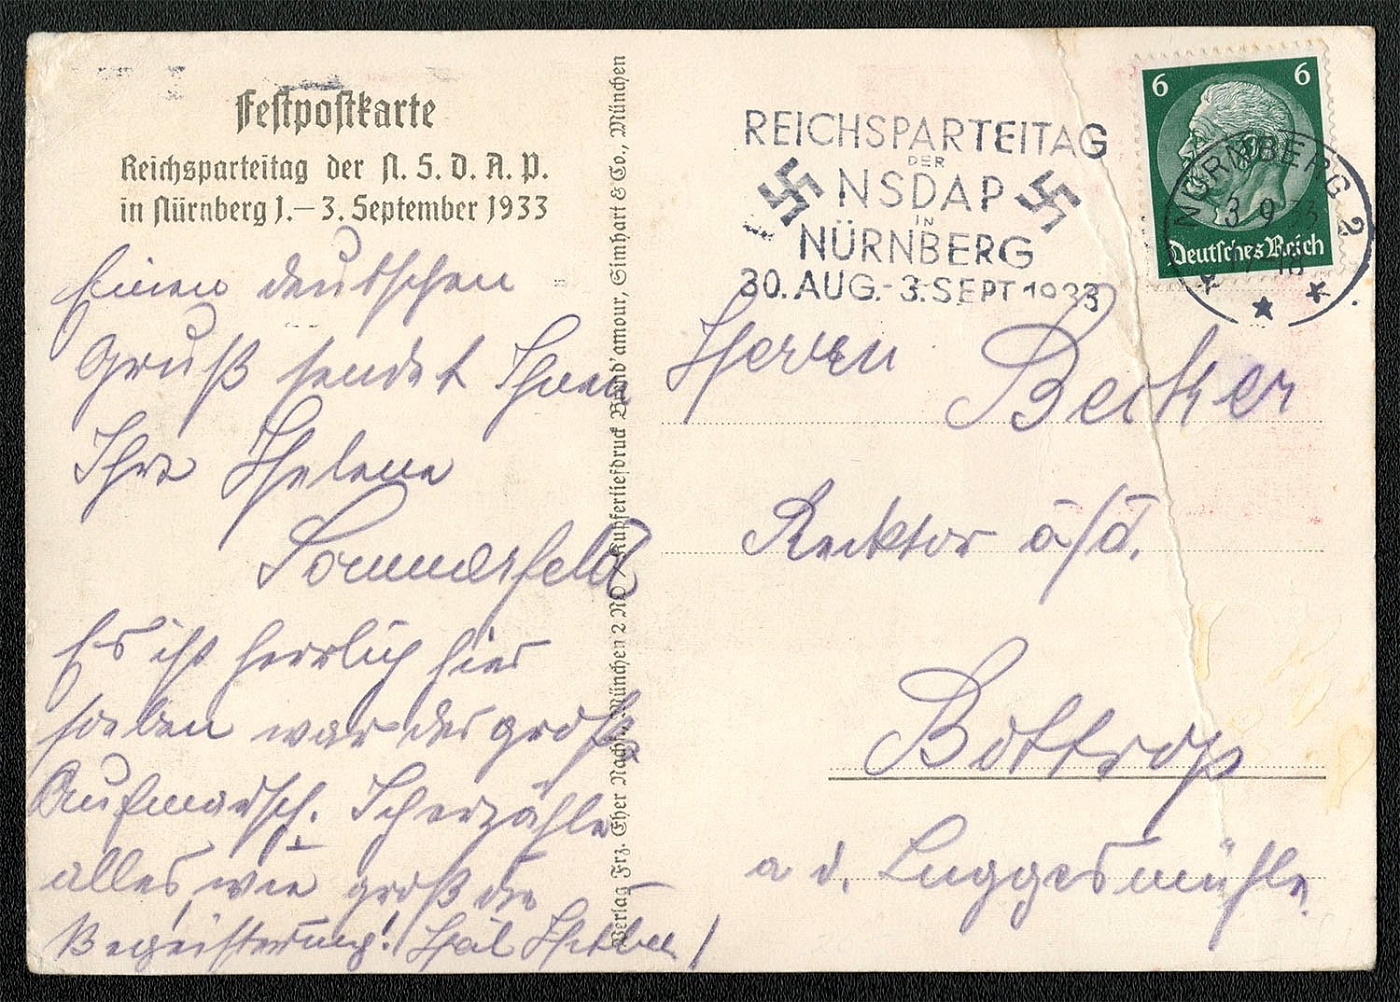 Festpostkarte
Reichsparteitag der N. S. D. A. P.
in Nürnberg 1.–3. September 1933
Einen deutschen
Gruß sendet Ihnen
Ihre Helene
Sommerfeld
Es ist herrlich hier
soeben war der große
Aufmarsch. Ich erzähle
alles, wie groß die
Begeisterung! Heil Hitler!
Verlag Frz. Eher Nachf., München 2 NO / Kupfertiefdruck Brend'amour, Simhart & Co., München
REICHSPARTEITAG
DER
NSDAP
IN
NÜRNBERG
30. AUG.-3. SEPT 1933
6 6
Deutsches Reich
NÜRNBERG 2
3 9 33
Herrn Becker
Rektor a/d.
Bottrop
a d. Luggesmühle.